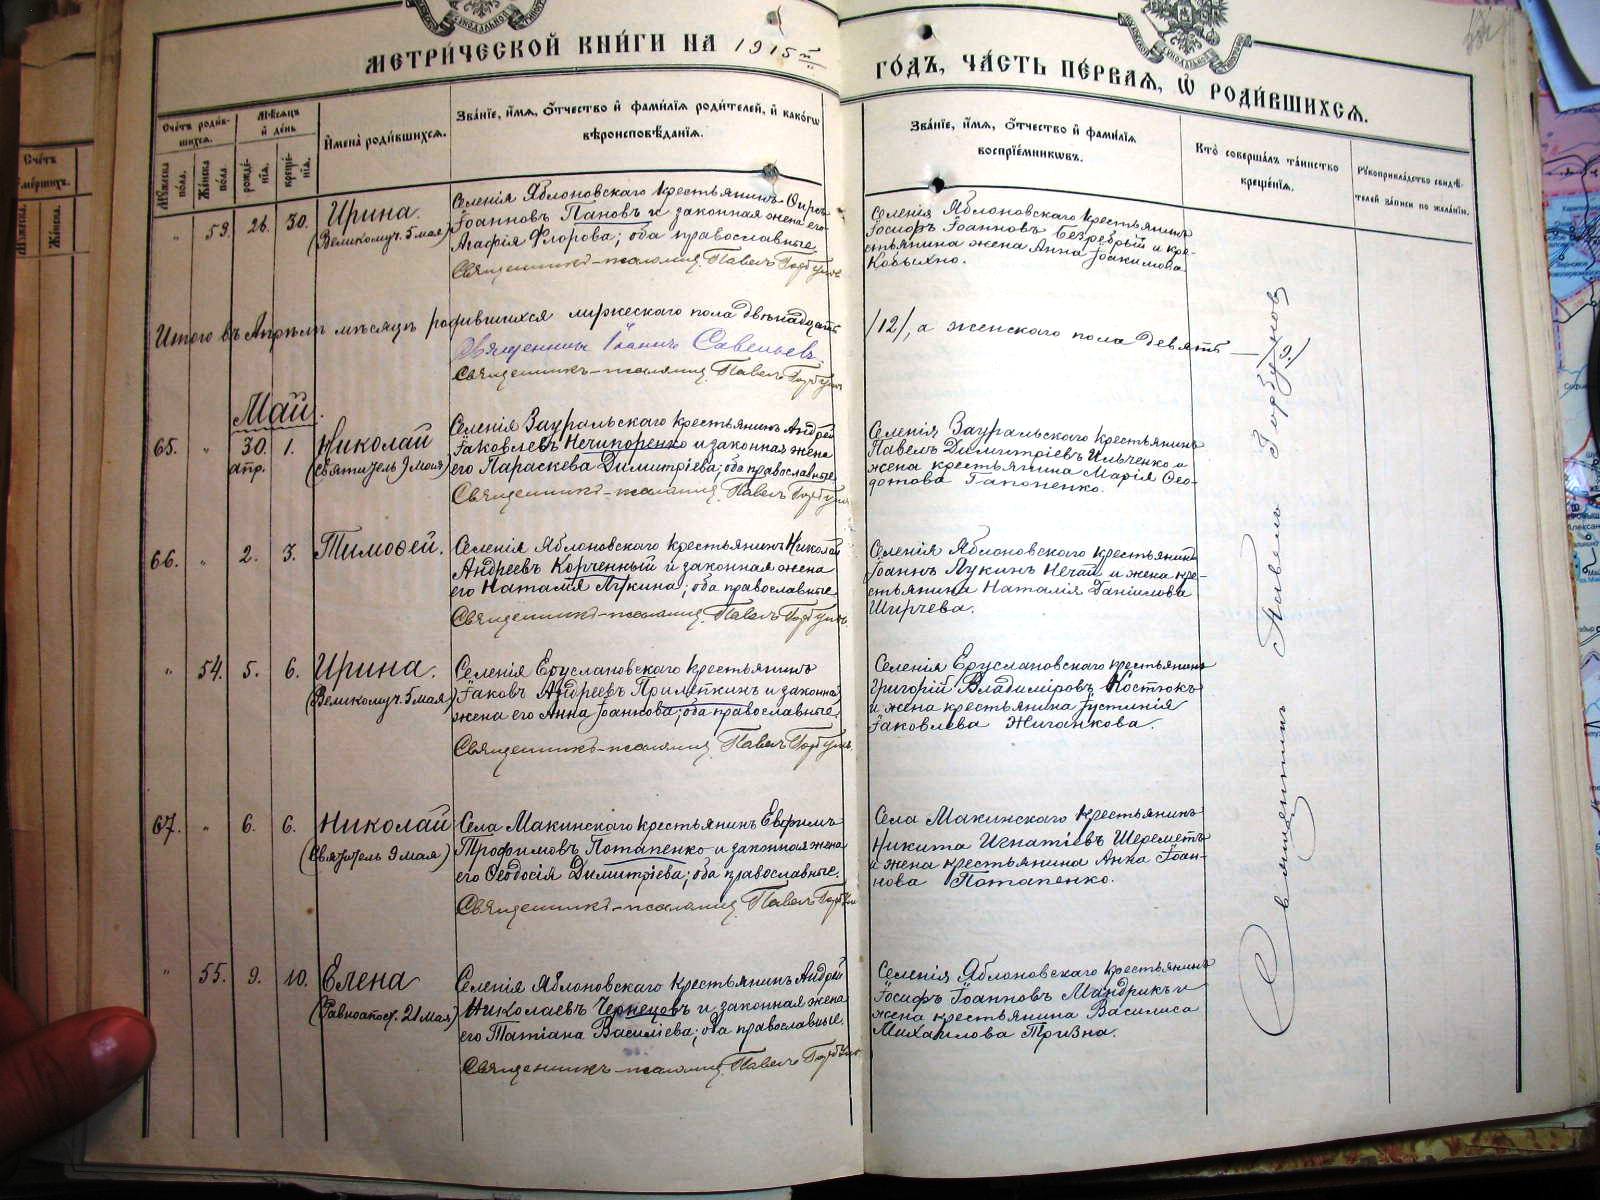 МЕТРИ́ЧЕСКОЙ КНИ́ГИ НА 1915й
ГО́ДЪ, ЧА́СТЬ ПЕ́РВАѦ, Ѽ РОДИ́ВШИХСѦ.
Сче́тъ роди́в-
шихся.
Мѣ́сѧцъ
и҆ де́нь
И҆мена̀ роди́вшихсѧ.
Зва́нїе, и҆́мѧ, ѻ҆́тчество и҆ фами́лїѧ роди́телей, и҆ како́гѡ
вѣроисповѣ́данїѧ.
Зва́нїе, и҆́мѧ, ѻ҆́тчество и҆ фами́лїѧ
воспрїе́мникѡвъ.
Кто̀ соверша́лъ та́инство
креще́нїѧ.
Рꙋкоприкла́дство свидѣ́-
телей за́писи по жела́нїю.
Мꙋ́жеска
по́ла.
Же́нска
по́ла
рожде́-
нїѧ.
креще́-
нїѧ.
Сче́тъ
Же́нска.
„ 53. 26. 30. Ирина.
(Великомуч. 5 мая)
Селенія Яблоновскаго крестьянинъ
Іоанновъ Пановъ и законная жена его
Агафія Флорова; оба православные
Священникъ-псаломщ. Павелъ Горбунов
Селенія Яблоновскаго крестьянинъ
Іосифъ Іоанновъ Безребрый и кре-
стьянина жена Анна Іоакимова
Итого въ Апрѣлѣ мѣсяцѣ родившихся мужескаго пола двѣнадцать
/12/, а женскаго пола девять — /9/
Священникъ Іоаннъ Савельевъ.
Священникъ-псаломщ. Павелъ Горбунов
Май.
65. „ 30. апр. 1. Николай
(Святитель 9 мая)
Селенія Зауральскаго крестьянинъ Андрей
Іаковлевъ Нечипоренко и законная жена
его Параскева Димитріева; оба православные
Священникъ-псаломщ. Павелъ Горбунов
Селенія Зауральскаго крестьянинъ
Павелъ Димитріевъ Ильченко и
жена крестьянина Марія Ѳео-
дотова Гапоненко.
66. „ 2. 3. Тимоѳей.
Селенія Яблоновскаго крестьянинъ Николай
Андреевъ Корченный и законная жена
его Наталія Лукина; оба православные
Священникъ-псаломщ. Павелъ Горбунов
Селенія Яблоновскаго крестьянинъ
Іоаннъ Лукинъ Нечай и жена кре-
стьянина Наталія Даніилова
Ширчева.
„ 54. 5. 6. Ирина.
(Великомуч. 5 мая)
Селенія Еруслановскаго крестьянинъ
Іаковъ Андреевъ Прилепкинъ и законная
жена его Анна Іоаннова; оба православные.
Священникъ-псаломщ. Павелъ Горбунов
Селенія Еруслановскаго крестьянинъ
Григорій Владиміровъ Костюкъ
и жена крестьянина Іустинія
Іаковлева Жиганкова.
67. „ 6. 6. Николай
(Святитель 9 мая)
Села Макинскаго крестьянинъ Евфимъ
Трофимовъ Потапенко и законная жена
его Ѳеодосія Димитріева; оба православные.
Священникъ-псаломщ. Павелъ Горбунов
Села Макинскаго крестьянинъ
Никита Игнатіевъ Шереметъ
и жена крестьянина Анна Іоан-
нова Потапенко.
„ 55. 9. 10. Елена
(Равноапост. 21 мая)
Селенія Яблоновскаго крестьянинъ Андрей
Николаевъ Чернецовъ и законная жена
его Татіана Василіева; оба православные.
Священникъ-псаломщ. Павелъ Горбунов
Селенія Яблоновскаго крестьянинъ
Іосифъ Іоанновъ Мандрикъ и
жена крестьянина Василиса
Михаилова Тризна.
Священникъ Павелъ Горбунов